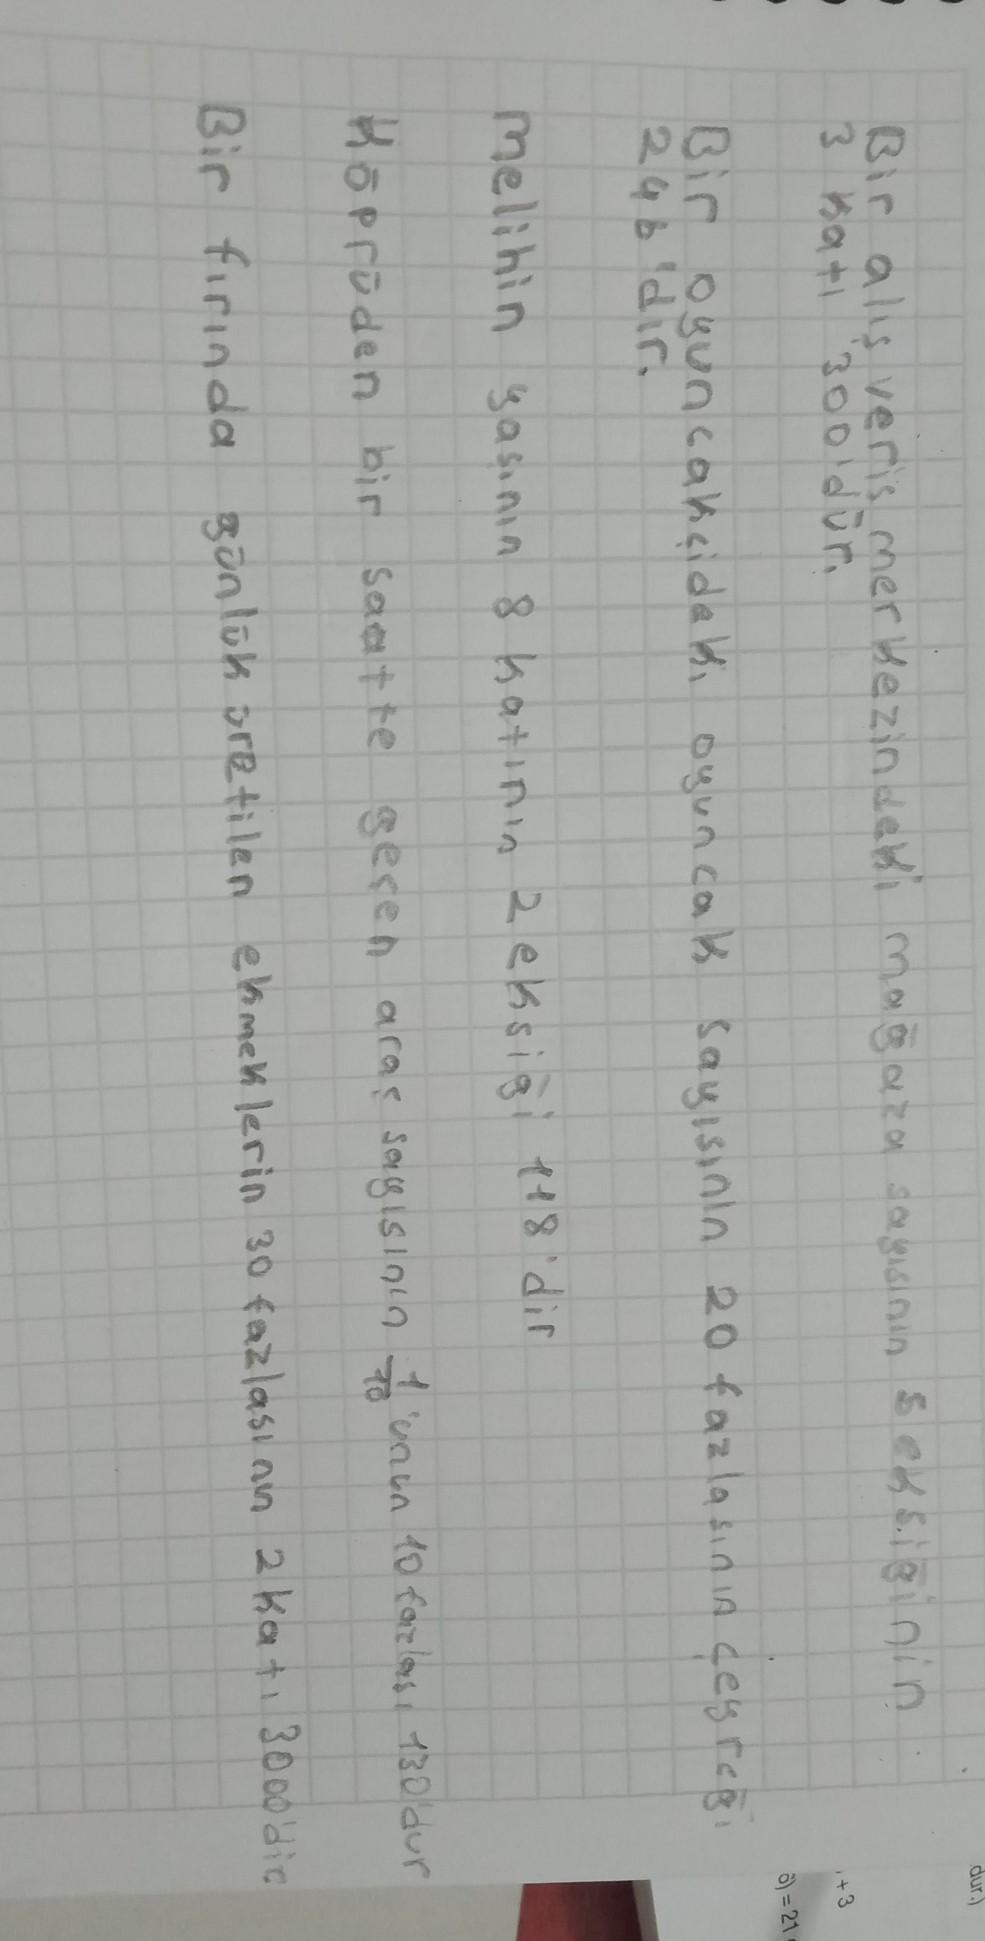 Bir alış veriş merkezindeki mağaza sayısının 5 eksiğinin
3 katı 300'dür.
Bir oyuncakçidaki oyuncak sayısının 20 fazlasının çeyreği
246'dır.
Melihin yaşının 8 katının 2 eksiği 118'dir
Köprüden bir saatte geçen araç sayısının 1/10 'unun 10 fazlası 130'dur
Bir fırında günlük üretilen ekmeklerin 30 fazlasının 2 katı 3000'dir
dur.)
+ 3
) = 21